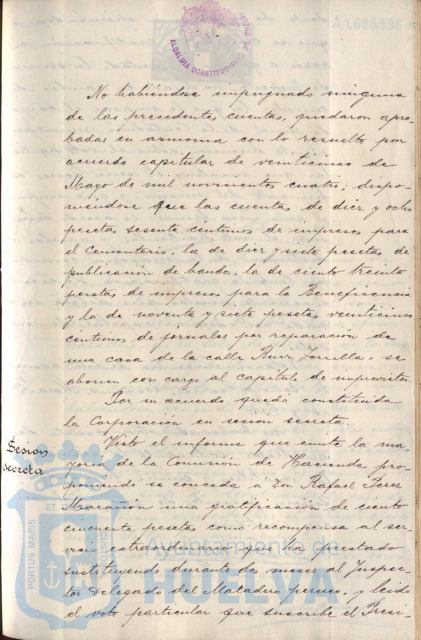 A1665596
ALCALDIA CONSTITUCIONAL DE HUELVA
No habiéndose impugnado ninguna
de las precedentes cuentas, quedaron apro-
badas en armonia con lo resuelto por
acuerdo capitular de veinticinco de
Mayo de mil novecientos cuatro; dispo-
niéndose que las cuentas de diez y ocho
pesetas sesenta céntimos de impresos para
el Cementerio, la de diez y siete pesetas de
publicación de bandos, la de ciento treinta
pesetas de impresos para la Beneficencia
y la de noventa y siete pesetas veinticinco
céntimos de jornales por reparación de
una casa de la calle Ruiz Zorrilla, se
abonen con cargo al capítulo de imprevistos.
Por su acuerdo quedó constituida
la Corporación en sesión secreta.
Sesion
secreta
Visto el informe que emite la ma-
yoria de la Comisión de Hacienda pro-
poniendo se conceda á Don Rafael Perez
una gratificación de ciento
cincuenta pesetas como recompensa al ser-
vicio extraordinario que ha prestado
sustituyendo durante meses al Inspec-
tor Delegado del Matadero y leido
el voto particular que suscribe el Presi-
PORTUS MARIS ET
CUSTODIA
Ayuntamiento de
HUELVA